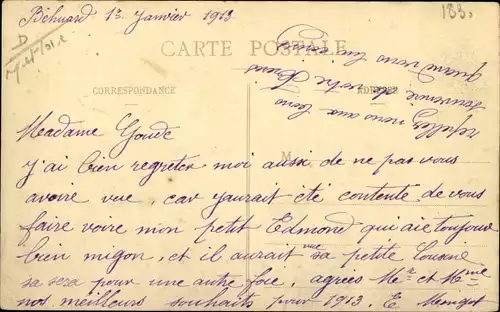 Béhuard 13 Janvier 1913
183.
D
M et Loire
CARTE POSTALE
CORRESPONDANCE
ADRESSE
M
rappellez nous aux bons
souvenir de votre
quand vous lui
Madame Goude
j'ai bien regreter moi aussi de ne pas vous
avoire vue, car j'aurait été contente de vous
faire voire mon petit Edmond qui aie toujours
bien mignon, et il aurait vue sa petite Cousine
sa sera pour une autre foie, agrées Mr et Mme
nos meilleurs souhaits pour 1913. E